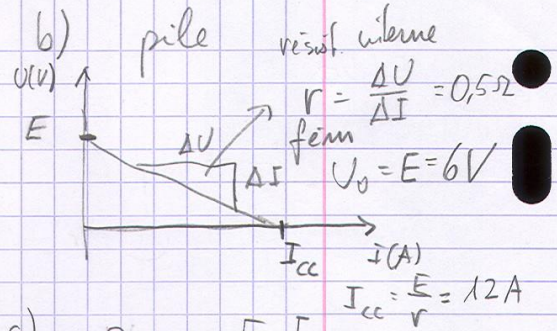 b) pile
résist. interne
U(V)
r = ΔU/ΔI = 0,5Ω
E
ΔU
fém
ΔI
U₀ = E = 6V
Icc
I(A)
Icc = E/r = 12 A